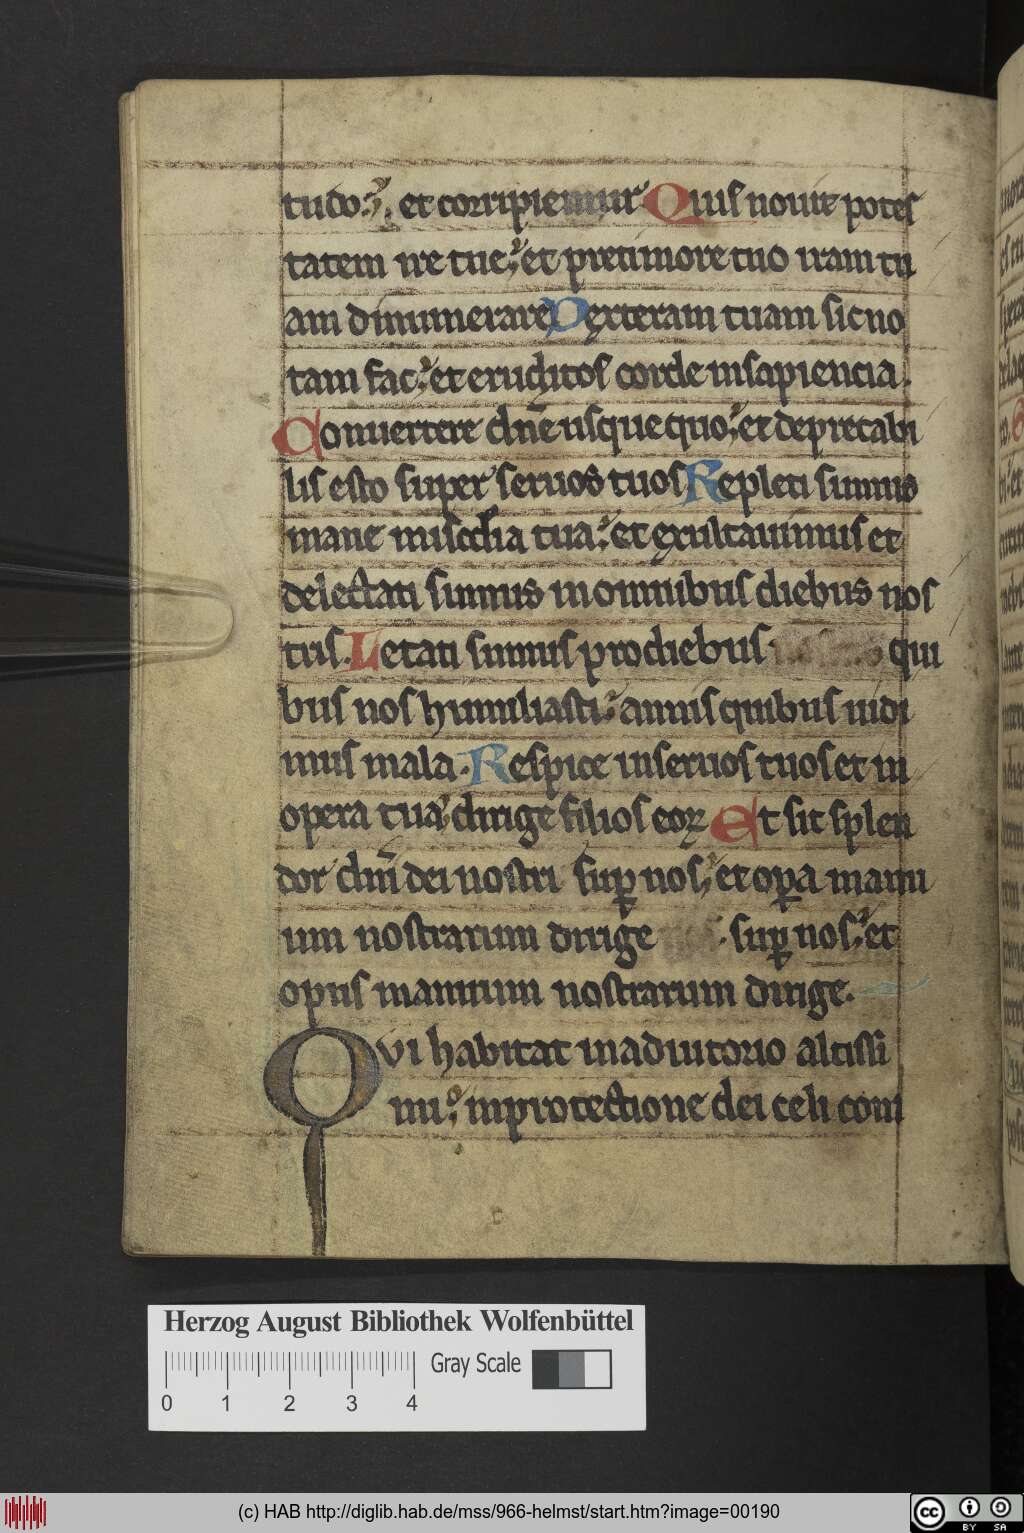 tudo. et corripiemur Quis nouit potes
tatem ire tue et pretimore tuo iram tu
am dinumerare Dexteram tuam sic no
tam fac et eruditos corde in sapiencia.
Conuertere dn̄e usque quo et deprecabi
lis esto super seruos tuos Repleti sumus
mane misc̄dia tua et exultauimus et
delectati sumus in omnibus diebus nos
tris. Letati sumus pro diebus qui
bus nos humiliasti annis quibus uidi
mus mala. Respice in seruos tuos et in
opera tua dirige filios eoꝝ Et sit splen
dor dn̄i dei nostri suꝑ nos et oꝑa manu
um nostrarum dirige suꝑ nos et
opus manuum nostrarum dirige.
Qvi habitat in adiutorio altissi
mi in protectione dei celi com
Herzog August Bibliothek Wolfenbüttel
0 1 2 3 4 Gray Scale
(c) HAB http://diglib.hab.de/mss/966-helmst/start.htm?image=00190
cc BY SA